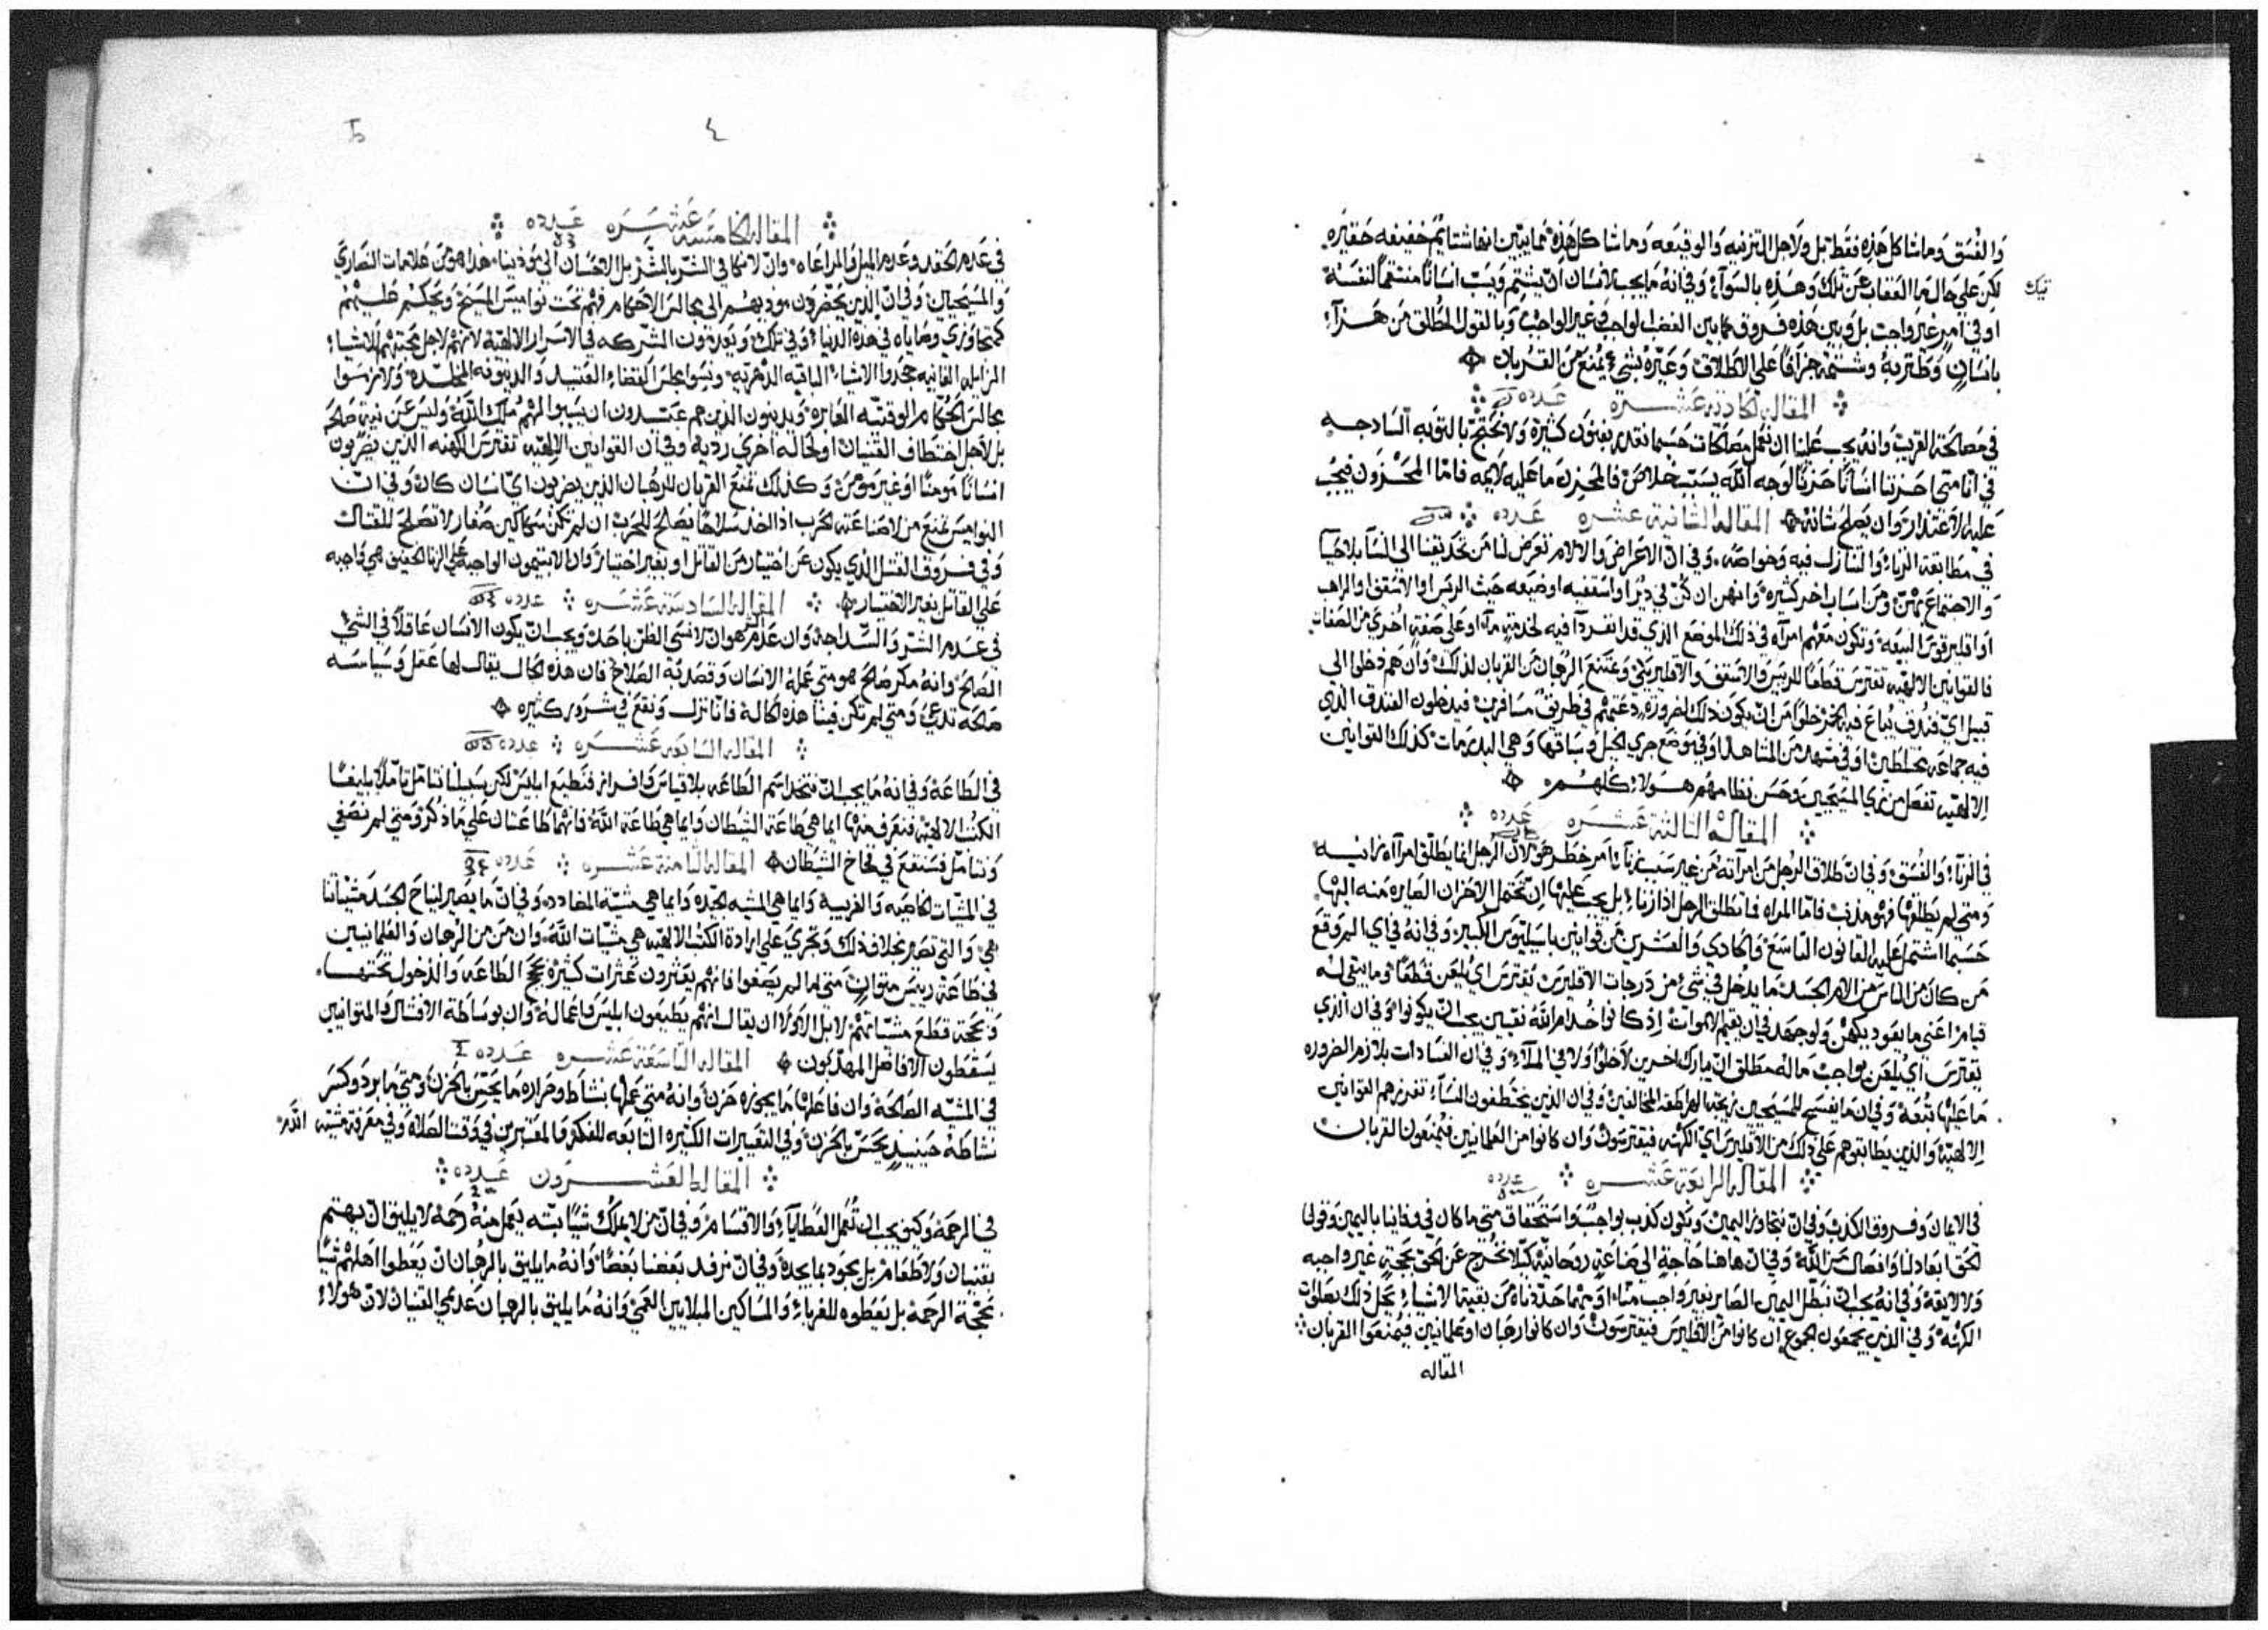 والفسق وماشاكل هذه فقط بل ولاجل التزنيه والوقيعه وماشاكل هذه مما يبين انها شتائم خفيفه حقيره
لكن على حال ما العقاب عن تلك وهذه بالسواء وفي انه ما يجب لانسان ان يشتم ويسب انسانا منتقما لنفسه
تيك
او في امر غير واجب بل وبين هذه فروق مابين الغضب الواجب في غير الواجب وبالقول المطلق من هزا
بانسان وشتمه جزافا على الاطلاق وعيره بشي يمنع من القربان
المقاله الحاديه عشره عدده
في مصالحة القريب وانه يجب علينا ان نعمل مصالحات حسبما نقدر بفنون كثيره ولا نحتج بالتوبه الساذجه
في انا متى احزنا انسانا حزنا لوجه الله بسبب خلاص فالمحزن ما عليه لايمه فاما المحزون فيجب
عليه الاعتذار وان يصلح شانه المقاله الثانيه عشره عدده
في مطابقة الزناء والتنازل فيه وخواصه وفي ان الاعراض والالام تعرض لنا من تحديقنا الى النسا بلا حيا
والاجتماع بهن ومن اسباب اخر كثيره وانهن ان كن في دير او اسقفيه او ضيعه حيث الريس او الاسقف او الراهب
او اقليرقوس البيعه وتكون معهم امراه في ذلك الموضع الذي قد انفردا فيه لخدمة ما او على صفة اخرى من الصفات
فالقوانين الالهيه تفترس قطعا للريس والاسقف والاقليريكي وتمنع الرهبان من القربان لذلك وان هم دخلوا الى
قبيل اي فندق يباع فيه الخمر خلوا من ان يكون ذلك لضرورة دعتهم في طريق مسافرين فيدخلون الفندق الذي
فيه جماعه مختلطين او في مشهد من المشاهد او في موضع جري الخيل وسباقها وهي البدرمات كذلك القوانين
الالهيه تفصل من زي المسيحيين وحسن نظامهم هولاء كلهم
المقالة الثالثة عشره عدده
في الزناء والفسق وفي ان طلاق الرجل من امراته من غير سبب زناء امر خطر هو لان الرجل انما يطلق امراه زانيه
ومتى لم يطلقها فهو مذنب فاما المراه فما تطلق الرجل اذا زنا بل يجب عليها ان تحتمل الاحزان الصايره منه اليها
حسبما اشتمل عليه القانون التاسع والحادي والعشرين من قوانين باسيليوس الكبير وفي انه في اي الم وقع
من كان من الناس من الام الجسد ما يدخل في شي من درجات الاقليرس يفترس اي يلعن قطعا وما يبقى له
قيام اعني ما يعود يكهن ولو جهد في ان يقيم الاموات اذ كانوا خدام الله نقيين يجب ان يكونوا وفي ان الذي
يفترس اي يلعن بواجب ماله مطلق ان يبارك اخرين لا خلوا ولا في الملاء وفي ان الفسادات بلا زم الضروره
ما عليها تبعة وفي ان ما يفسح للمسيحيين زيجة الهراطقه المخالفين وفي ان الذين يختطفون النساء تفرزهم القوانين
الالهيه والذين يطابقوهم على ذلك من الاقليرس اي الكهنه فيفترسون وان كانوا من العلمانيين فيمنعون القربان
المقاله الرابعه عشره عدده
في الايمان وفروق الكذب وفي ان نتجاوز اليمين ويكون كذب بواجب واستحقاق متى ما كان في وفاينا باليمين وقولنا
الحق ابعادا لنا وانفصال من الله وفي ان هاهنا حاجة الى صناعة روحانيه كيلا نخرج عن الحق بحجة غير واجبه
ولا لايقه وفي انه يجب ان نبطل اليمين الصاير بغير واجب منا او مهما حددناه من بقية الاشياء نحل ذلك بصلوات
الكهنه وفي الذين يجمعون الجموع ان كانوا من الاقليرس فيفترسون وان كانوا رهبان او علمانيين فيمنعوا القربان
المقاله
٤
المقاله الخامسه عشره عدده
في عدم الحقد وعدم الميل والمراعاه وان لا نكافي الشر بالشر بل الاحسان الى موذينا هذا هو من علامات النصارى
والمسيحيين وفي ان الذين يحضرون موذيهم الى مجالس الاحكام فهم تحت نواميس المسيح ويحكم عليهم
كمتجاوزي وصاياه في هذه الدنيا وفي تلك ويعدمون الشركه في الاسرار الالهيه لانهم لاجل محبتهم للاشياء
الزايله الفانيه جحدوا الاشياء الباقيه الدهريه ونسوا مجلس القضاء العتيد والدينونه المخلده ولازموا
مجالس الحكام الوقتيه العابره ويدينون الذين هم عتيدون ان يسببوا لهم ملك الله وليس عن نية صالحه
بل لاجل اختطاف القنيان او لحالة اخرى رديه وفي ان القوانين الالهيه تفترس الكهنه الذين يضربون
انسانا مومنا او غير مومن وكذلك تمنع القربان للرهبان الذين يضربون اي انسان كان وفي ان
النواميس تمنع من لا صناعته الحرب اخذ سلاحا يصلح للحرب ان لم تكن سكاكين صغار لا تصلح للقتال
وفي فروق القتل الذي يكون عن اختيار من القاتل او بغير اختيار وان الابتيميون الواجبه على الزنا الحقيق هي واجبه
على القاتل بغير الاختيار المقاله السادسه عشره عدده
في عدم الشر والسذاجه وان عدم الشر هو ان لا نسي الظن باحد ويجب ان يكون الانسان عاقلا في الشي
الصالح وانه مكر صالح هو متى عمله الانسان وقصد به الصلاح فان هذه الحال يقال لها عقل وسياسه
صالحه تدعى ومتى لم تكن فينا هذه الحالة فانا نزل ونقع في شرور كثيره
المقاله السابعه عشره عدده
في الطاعة وفي انه ما يجب ان نتخذ اسم الطاعه بلا قياس وافراز فنطيع ابليس لكن سبيلنا نتامل تاملا بليغا
الكتب الالهيه فنعرف منها ايما هي طاعة الشيطان وايما هي طاعة الله فانهما طاعتان على ما ذكر ومتى لم نصغي
ونتامل فسنقع في فخاخ الشيطان المقاله الثامنه عشره عدده
في المشيات الخاصيه والغريبه وايما هي المشيه الجيده وايما هي مشية المضادد وفي ان ما يصير لنياح الجسد مشياتنا
هي والتي تصير بخلاف ذلك وتجري على ارادة الكتب الالهيه هي مشيات الله وان من من الرهبان والعلمانيين
في طاعة رييس متوان متى ما لم يصغوا فانهم يعثرون عثرات كثيره بحجج الطاعه والدخول تحتها
وبحجة قطع مشياتهم لا بل الاولا ان يقال انهم يطيعون ابليس واعماله وان بوساطه الافشال والمتوانيين
يسقطون الافاضل المهذبون المقاله التاسعه عشره عدده
في المشيه الصالحه وان فاعلها ما يجوزه حزن وانه متى عملها بنشاط وحراره ما يحس بالحزن ومتى ما برد وكسر
نشاطه حينيذ يحس بالحزن وفي التغييرات الكثيره التابعه للفكر والمعتبرين في وقت الصلاه وفي معرفة مشية الله
المقاله العشرون عدده
في الرحمه وكيف يجب ان تعمل العطايا والاقسام وفي ان من لا يملك شيا بته يعمل منه رحمه لا يليق ان يهتم
بقنيان ولا طعام بل يجود بما يجده وفي ان نرفد بعضنا بعضا وانه ما يليق بالرهبان ان يعطوا اهلهم شيا
بحجة الرحمه بل يعطوه للغرباء والمساكين المبلايين العمي وانه ما يليق بالرهبان عديمي القنيان لان هولاء